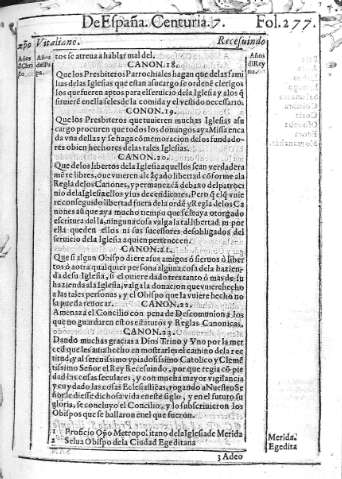 De España. Centuria. 7. Fol. 277.
Vitaliano. Recesuindo
Años Años Años
tos se atreua a hablar mal del.
CANON. 18.
Que los Presbiteros Parrochiales hagan que de las fami
lias de las Iglesias que estan a su cargo se ordenē clerigos
los que fueren aptos para el seruicio de la Iglesia y a los q̄
siruierē en ella se les de la comida y el vestido necessario.
CONON. 19.
Que los Presbiteros que tuuieren muchas Iglesias a su
cargo procuren que todos los domingos aya Missa en ca
da vna dellas y se haga cōmemoracion de sus fundado
res o bien hechores de las tales Iglesias.
CANON. 20.
Que de los libertos de la Iglesia aquellos sean verdadera
mēte libres, que vuieren alcāçado libertad cōforme a la
Regla de los Canones, y permanezcā debaxo del patroci
nio de la Iglesia ellos y sus decendientes. Pero si el q̄ vuie
re conseguido libertad fuera de la ordē y Regla de los Ca
nones aūque aya mucho tiempo que se le aya otorgado
escritura della, ninguna cosa valga la tal libertad ni por
ella queden ellos ni sus sucessores desobligados del
seruicio de la Iglesia a quien pertenecen.
CANON. 21.
Que si algun Obispo diere a sus amigos ó sieruos ó liber
tos ó a otra qualquier persona alguna cosa de la hazien-
da de su Iglesia, si el vuiere dado tres tanto ó mas de su
hazienda a la Iglesia, valga la donacion que vuiere hecho
a las tales personas, y el Obispo que la vuiere hecho no
la pueda reuocar. CANON. 22.
Amenaza el Concilio con pena de Descomunion á los
que no guardaren estos estatutos y Reglas Canonicas.
CANON. 23.
Dando muchas gracias a Dios Trino y Vno por la mer
ced que les auia hecho en mostrarles el camino de la re
ctitud, y al serenissimo y piadosissimo Catolico y Clemē
tissimo Señor el Rey Recesuindo, por que regia cō pie
dad las cosas seculares, y con mucha mayor vigilancia
y cuydado las cosas Ecclesiasticas, rogando a Nuestro Se
ñor le diesse dichosa vida en este siglo, y en el futuro su
gloria, se concluyo el Concilio, y lo subscriuieron los
Obispos que se hallaron en el que fueron.
1 Proficio Obispo Metropolitano de la Iglesia de Merida
2 Selua Obispo de la Ciudad Egeditana
Merida.
Egedita
3 Adeo